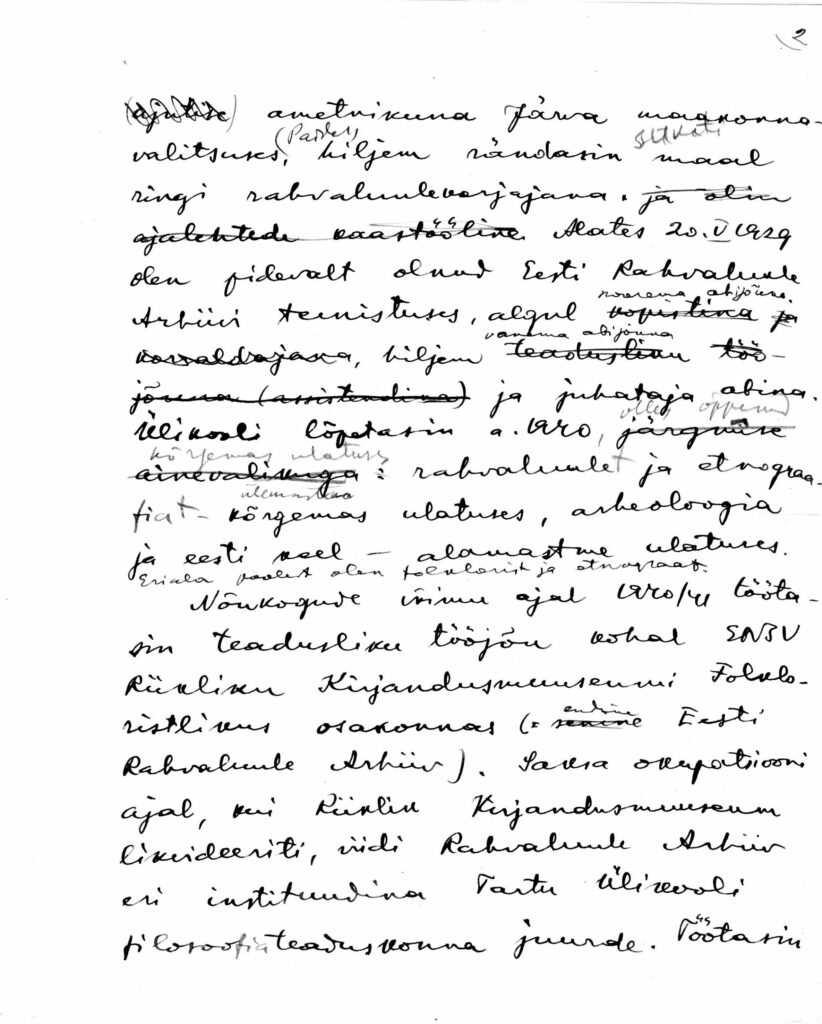 2
(ajutise) ametnikuna Järva maakonna-
(Paides) sukati
valitsuses, hiljem rändasin maal
ringi rahvaluulekorjajana. ja olin
ajalehtede kaastööline. Alates 20. V 1929
olen pidevalt olnud Eesti Rahvaluule
noorema abijõuna.
Arhiivi teenistuses, algul kopistina ja
vanema abijõuna
korraldajana, hiljem teadusliku töö-
jõuna (assistendina) ja juhataja abina.
olles õppinud
Ülikooli lõpetasin a. 1940, järgmise
kõrgemas ulatuses
ainevalikuga: rahvaluulet ja etnograa-
ülemastme
fiat – kõrgemas ulatuses, arheoloogia
ja eesti keel – alamastme ulatuses.
Eriala poolest olen folklorist ja etnograaf.
Nõukogude võimu ajal 1940/41 tööta-
sin teadusliku tööjõu kohal ENSV
Riikliku Kirjandusmuuseumi Folklo-
endine
ristlikus osakonnas (= senine Eesti
Rahvaluule Arhiiv). Saksa okupatsiooni
ajal, kui Riiklik Kirjandusmuuseum
likvideeriti, viidi Rahvaluule Arhiiv
eri instituudina Tartu Ülikooli
filosoofiateaduskonna juurde. Töötasin